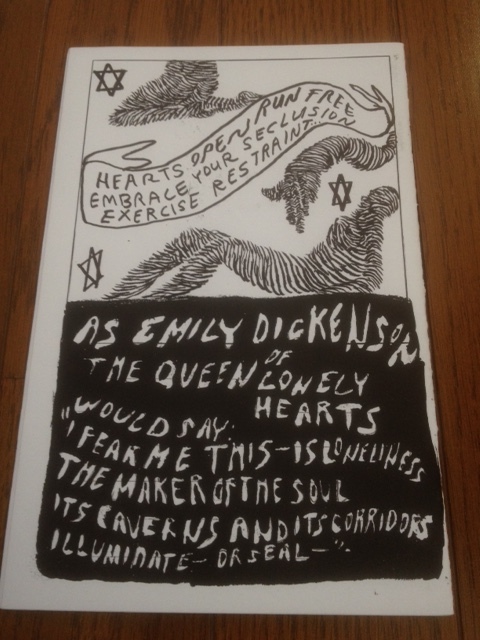 HEARTS OPEN RUN FREE
EMBRACE YOUR SECLUSION
EXERCISE RESTRAINT...
AS EMILY DICKENSON
THE QUEEN OF LONELY
HEARTS
WOULD SAY:
"I FEAR ME THIS-IS LONELINESS
THE MAKER OF THE SOUL
ITS CAVERNS AND ITS CORRIDORS
ILLUMINATE- OR SEAL-".